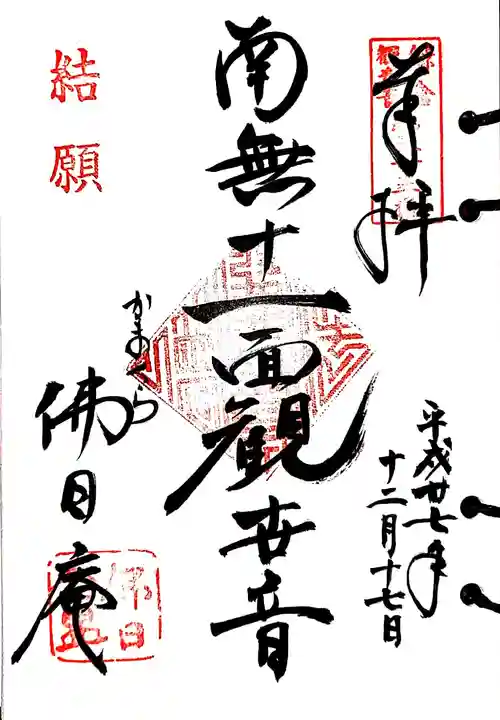 奉拝
平成廿七年
十二月十七日
南無十一面観世音
かまくら
佛日庵
結願